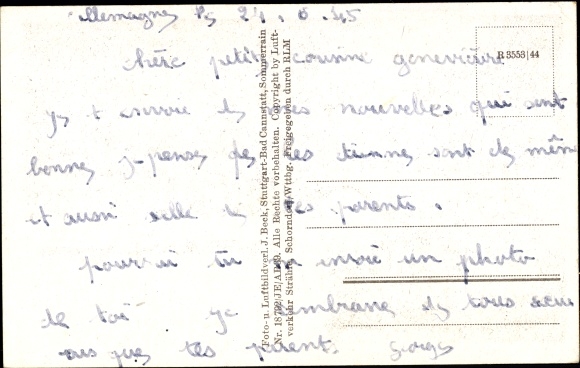 Allemagne le 21.8.45
chère petite cousine geneviève
R 3553|44
je t envoie de mes nouvelles qui sont
bonnes j-pense que les tienne sont de même
et aussi celle de tes parents.
pourrai tu m envoié un photo
de toi je embrasse de tous
que tes parent. Georges
Foto- u. Luftbildverl. J. Beck, Stuttgart-Bad Cannstatt, Sommerrain
Alle Rechte vorbehalten. Copyright by Luft-
verkehr Strähle, Schorndorf, Wttbg. Freigegeben durch RLM